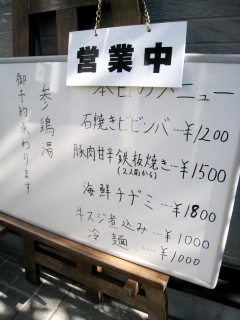 営業中
本日のメニュー
石焼きビビンバ…¥1200
豚肉甘辛鉄板焼き…¥1500
(2人前から)
海鮮チヂミ…¥1800
牛スジ煮込み…¥1000
冷麺…¥1000
参鶏湯
御予約承わります